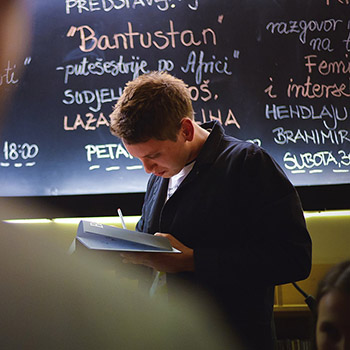 PREDSTAVLJ
"Bantustan"
-putešestvije po Africi"
SUDJEL OŠ,
LAŽA LINA
PETA
18:00
razgovor
na t
Femi
i interse
HENDLAJU
BRANIMIR
SUBOTA 3